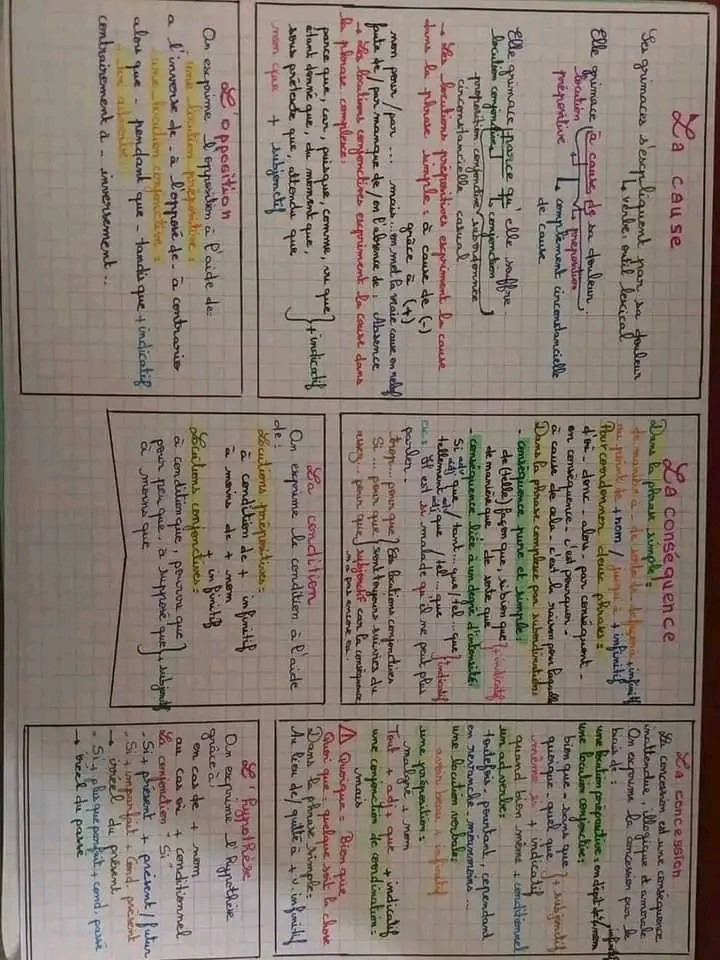 La cause
Ses grimaces s'expliquent par sa douleur
↳ verbe outil lexical
Elle grimace à cause de sa douleur.
locution ↳ préposition
prépositive ↳ complément circonstancielle
de cause
Elle grimace parce qu'elle souffre.
locution conjonctive ↳ conjonction
proposition conjonctive subordonnée
circonstancielle causal
→ Les locutions prépositives expriment la cause
dans la phrase simple : à cause de (-)
grâce à (+)
non pour/par ... mais... on met la vraie cause en relief
faute de/par manque de/en l'absence de : Absence
→ Les locutions conjonctives expriment la cause dans
la phrase complexe :
parce que, car, puisque, comme, vu que
étant donné que, du moment que, } + indicatif
sous prétexte que, attendu que
non que + subjonctif
L'opposition
On exprime l'opposition à l'aide de :
une locution prépositive :
à l'inverse de - à l'opposé de - à contrario
une locution conjonctive :
alors que - pendant que - tandis que + indicatif
un adverbe
contrairement à - inversement...
La conséquence
Dans la phrase simple :
de manière à - de sorte de - de façon à + infinitif
au point de + nom / jusqu'à + infinitif
Pour coordonner deux phrases :
d'où - donc - alors - par conséquent -
en conséquence - c'est pourquoi -
à cause de cela - c'est la raison pour laquelle
Dans la phrase complexe par subordination
- conséquence pure et simple :
de (telle) façon que, si bien que } + indicatif
de manière que de sorte que
- conséquence liée à un degré d'intensité
Si adv/adj que / tant... que / tel... que } indicatif
tellement adv/adj que / tel... que
ex : Il est si malade qu'il ne peut plus
parler.
trop... pour que } Les locutions conjonctives
Si... pour que } sont toujours suivies du
assez... pour que } subjonctif car la conséquence
n'a pas encore eu.
La condition
On exprime la condition à l'aide
de :
Locutions prépositives :
à condition de + infinitif
à moins de + nom
+ infinitif
Locutions conjonctives :
à condition que, pourvu que
pour peu que, à supposé que } + subjonctif
à moins que
La concession
La concession est une conséquence
inattendue, illogique et anormale
On exprime la concession par le
biais de :
une locution prépositive : en dépit de + nom
infinitif
une locution conjonctive :
bien que - sans que } + subjonctif
quoique - quel que
même si + indicatif
quand bien même + conditionnel
un adverbe :
toutefois - pourtant, cependant
en revanche - néanmoins ...
une locution verbale :
avoir beau + infinitif
une préposition :
malgré + nom
Tout + adj + que + indicatif
une conjonction de coordination :
mais
⚠ Quoique = Bien que
Quoi que = quelque soit la chose
Dans la phrase simple :
Au lieu de / quitte à + v. infinitif
L'hypothèse
On exprime l'hypothèse
grâce à
en cas de + nom
au cas où + conditionnel
La conjonction "Si"
- Si + présent + présent/futur
- Si + imparfait + Cond. présent
→ irréel du présent
- Si + plus que parfait + cond. passé
→ irréel du passé